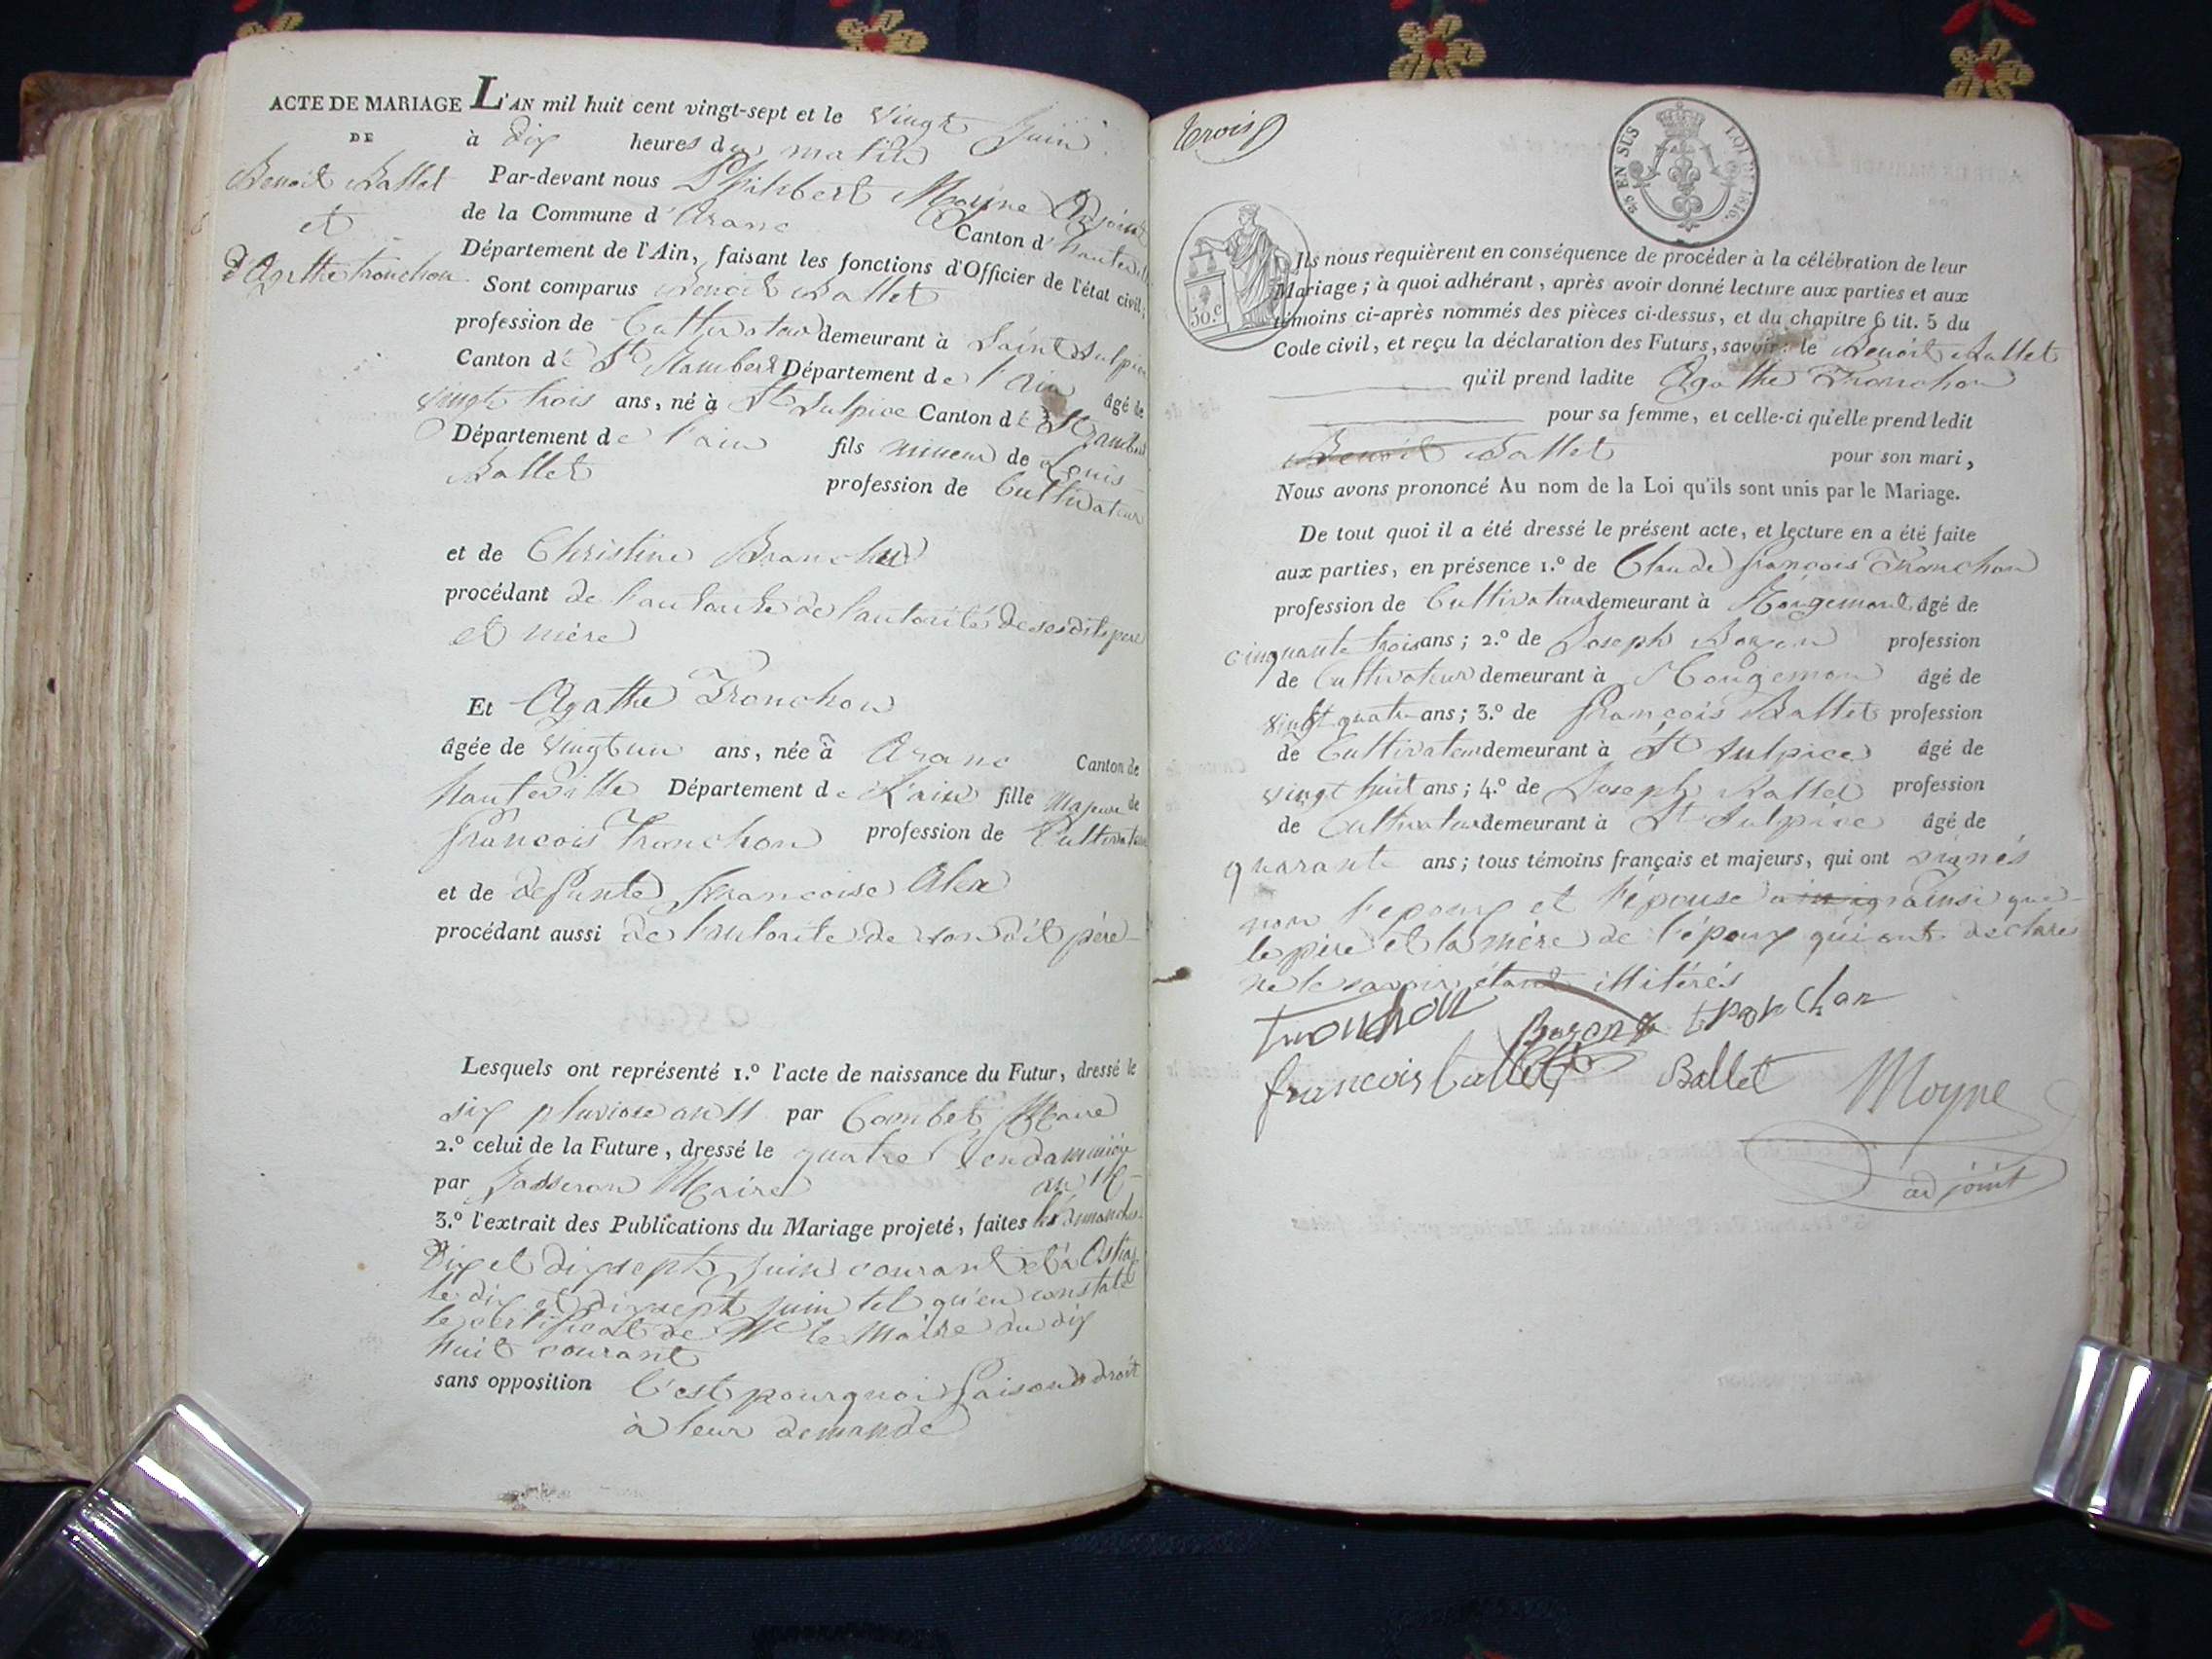 ACTE DE MARIAGE
DE
Benoit Ballet
et
d'Agathe tronchon
L'AN mil huit cent vingt-sept et le vingt Juin
à dix heures du matin
Par-devant nous Philibert Moyne Adjoint
de la Commune d'Aranc Canton d'hauteville
Département de l'Ain, faisant les fonctions d'Officier de l'état civil;
Sont comparus Benoit Ballet
profession de Cultivateur demeurant à Saint Sulpice
Canton de St Rambert Département de l'Ain âgé de
vingt trois ans, né à St Sulpice Canton de St Rambert
Département de l'ain fils mineur de Louis
Ballet profession de Cultivateur
et de Christine Branche
procédant de l'autorité de l'autorité de ses dits père
et mère
Et Agathe Tronchon
âgée de vingt un ans, née à Aranc Canton de
hauteville Département de L'ain fille Majeure de
françois Tronchon profession de Cultivateur
et de defunte françoise Alex
procédant aussi de l'autorité de son dit père
Lesquels ont représenté 1.º l'acte de naissance du Futur, dressé le
six pluviose an 11 par Combet Maire
2.º celui de la Future, dressé le quatre Vendammiée
par Jasseron Maire an 14
3.º l'extrait des Publications du Mariage projeté, faites les dimanches
dix et dix sept juin courant et à
le dix et dix sept juin tel qu'en constate
le certificat de Mr le Maire du dix
huit courant
sans opposition C'est pourquoi faisons droit
à leur demande
trois
25 EN SUS LOI DE 1816.
50.c
Ils nous requièrent en conséquence de procéder à la célébration de leur
Mariage; à quoi adhérant, après avoir donné lecture aux parties et aux
témoins ci-après nommés des pièces ci-dessus, et du chapitre 6 tit. 5 du
Code civil, et reçu la déclaration des Futurs, savoir: le Benoit Ballet
qu'il prend ladite Agathe Tronchon
pour sa femme, et celle-ci qu'elle prend ledit
Benoit Ballet pour son mari,
Nous avons prononcé Au nom de la Loi qu'ils sont unis par le Mariage.
De tout quoi il a été dressé le présent acte, et lecture en a été faite
aux parties, en présence 1.º de Claude françois Tronchon
profession de Cultivateur demeurant à Rougemont âgé de
cinquante trois ans; 2.º de Joseph Bozon profession
de Cultivateur demeurant à Rougemon âgé de
vingt quatre ans; 3.º de françois Ballet profession
de Cultivateur demeurant à St Sulpice âgé de
vingt huit ans; 4.º de Joseph Ballet profession
de Cultivateur demeurant à St Sulpice âgé de
quarante ans; tous témoins français et majeurs, qui ont signés
non l'epoux et l'épouse ainsi que
le père et la mère de l'époux qui ont declaré
ne le savoir étant illitérés
tronchon Bozon tronchon
francois ballet Ballet Moyne
adjoint